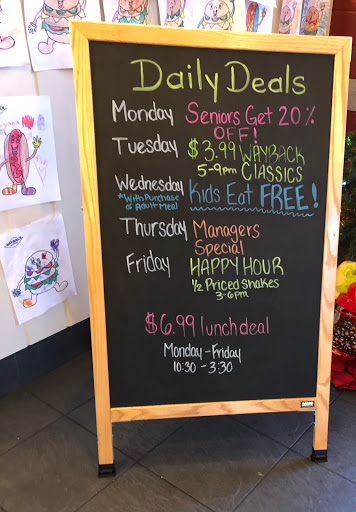 Daily Deals
Monday Seniors Get 20%
OFF!
Tuesday $3.99 WAYBACK
5-9pm CLASSICS
Wednesday Kids Eat FREE!
*With Purchase
of Adult Meal
Thursday Managers
Special
Friday HAPPY HOUR
½ Priced Shakes
3-6pm
$6.99 lunch deal
Monday-Friday
10:30-3:30